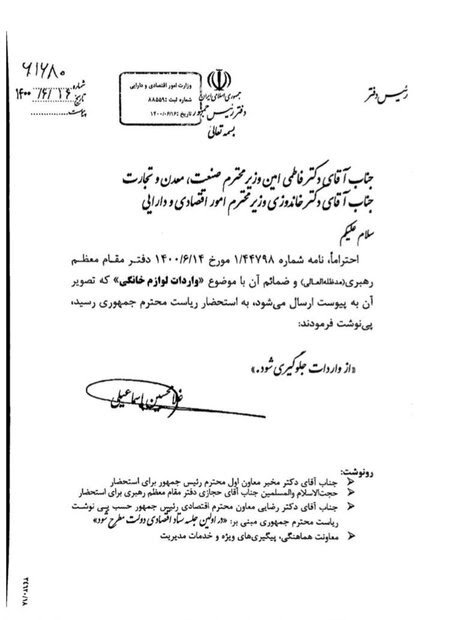 رئیس دفتر
جمهوری اسلامی ایران
دفتر رئیس جمهور
بسمه تعالی
وزارت امور اقتصادی و دارایی
شماره ثبت: ۸۸۵۵۹
تاریخ: ۱۴۰۰/۰۶/۱۶
۶۱۷۸۰
شماره
تاریخ ۱۴۰۰/۶/۱۶
پیوست
جناب آقای دکتر فاطمی امین وزیر محترم صنعت، معدن و تجارت
جناب آقای دکتر خاندوزی وزیر محترم امور اقتصادی و دارایی
سلام علیکم
احتراماً، نامه شماره ۱/۴۴۷۹۸ مورخ ۱۴۰۰/۶/۱۴ دفتر مقام معظم
رهبری(مدظله‌العالی) و ضمائم آن با موضوع «واردات لوازم خانگی» که تصویر
آن به پیوست ارسال می‌شود، به استحضار ریاست محترم جمهوری رسید،
پی‌نوشت فرمودند:
«از واردات جلوگیری شود.»
غلامحسین اسماعیلی
رونوشت:
جناب آقای دکتر مخبر معاون اول محترم رئیس جمهور برای استحضار
حجت‌الاسلام والمسلمین جناب آقای حجازی دفتر مقام معظم رهبری برای استحضار
جناب آقای دکتر رضایی معاون محترم اقتصادی رئیس جمهور حسب پی نوشت
ریاست محترم جمهوری مبنی بر: «در اولین جلسه ستاد اقتصادی دولت مطرح شود»
معاونت هماهنگی، پیگیری‌های ویژه و خدمات مدیریت